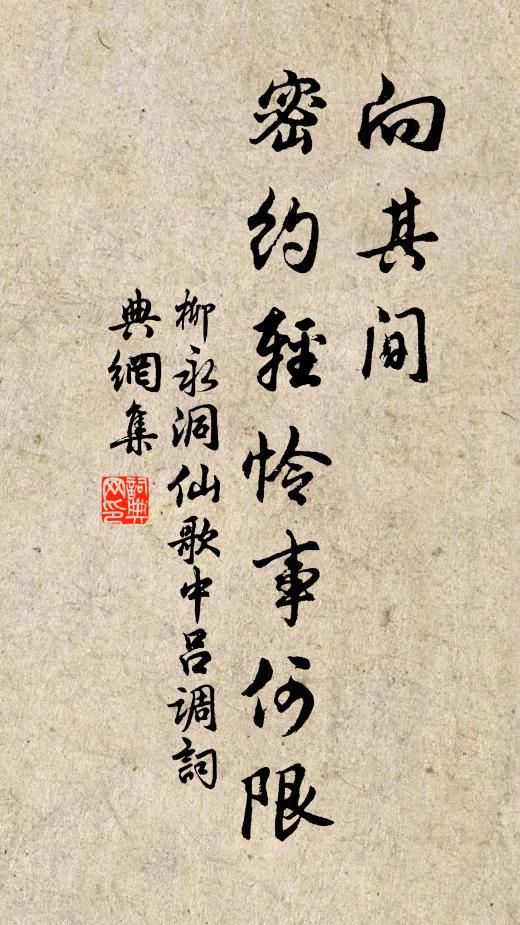 向其间
密约轻怜事何限
柳永洞仙歌中吕调词
典網集
詞典網印